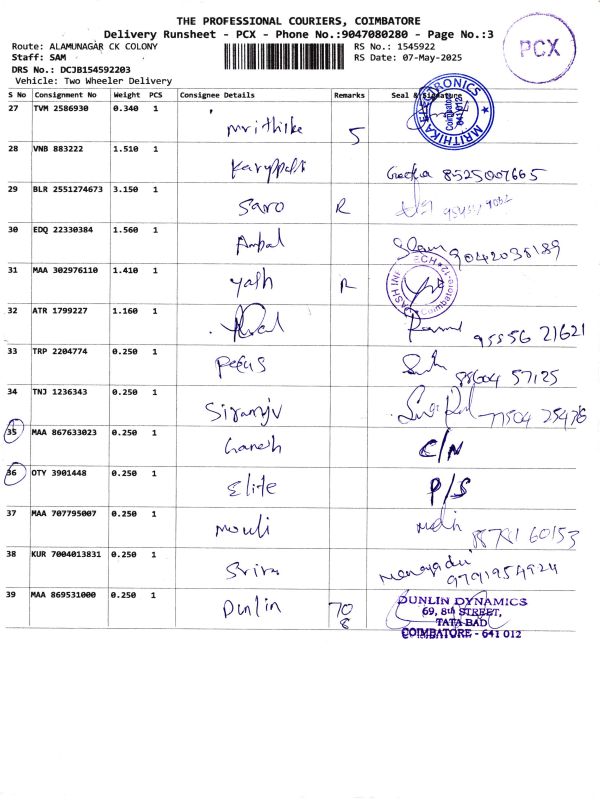 THE PROFESSIONAL COURIERS, COIMBATORE
Delivery Runsheet - PCX - Phone No.:9047080280 - Page No.:3
Route: ALAMUNAGAR CK COLONY
Staff: SAM
DRS No.: DCJB154592203
Vehicle: Two Wheeler Delivery
RS No.: 1545922
RS Date: 07-May-2025
PCX
S No Consignment No Weight PCS Consignee Details Remarks Seal & Signature
27 TVM 2586930 0.340 1 Mrithike 5
MRITHIKA ELECTRONICS
Coimbatore
641 012
28 VNB 883222 1.510 1 8525007665
29 BLR 2551274673 3.150 1 Saro R
30 EDQ 22330384 1.560 1 Ambal 9042038189
31 MAA 302976110 1.410 1 yash R
32 ATR 1799227 1.160 1 95556 21621
33 TRP 2204774 0.250 1 88604 57125
34 TNJ 1236343 0.250 1 77504 25478
35 MAA 867633023 0.250 1 Ganesh C/N
36 OTY 3901448 0.250 1 Elite P/S
37 MAA 707795007 0.250 1 Mouli 60153
38 KUR 7004013831 0.250 1 9791954924
39 MAA 869531000 0.250 1 Dunlin 70
8
DUNLIN DYNAMICS
69, 8th STREET,
TATABAD
COIMBATORE - 641 012